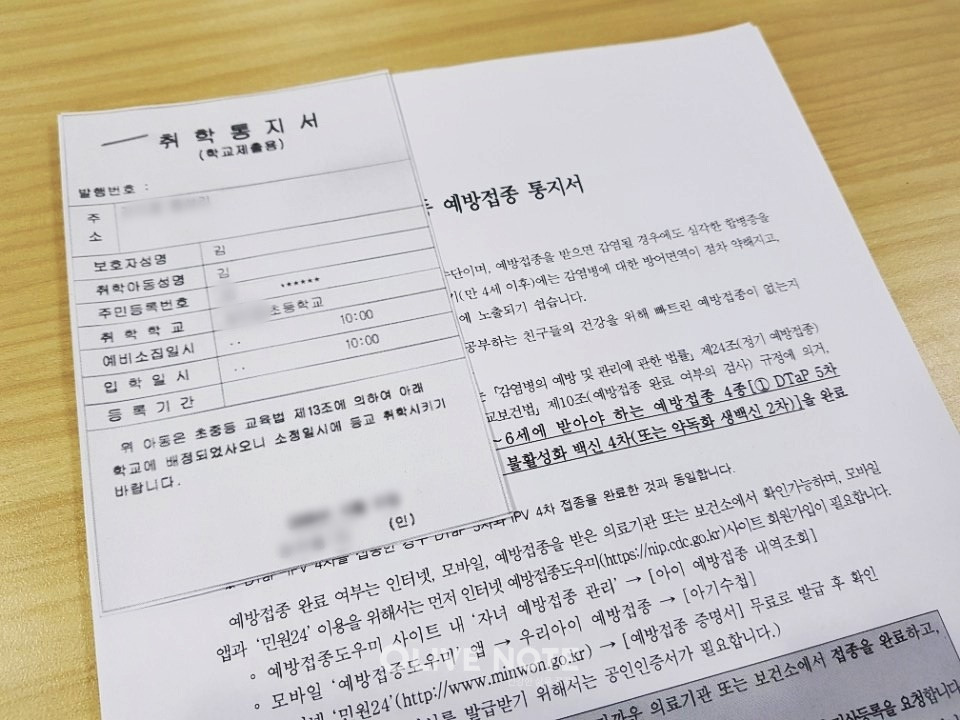 취 학 통 지 서
(학교제출용)
발행번호 :
주
소
보호자성명 김
취학아동성명 김
주민등록번호 ******
취 학 학 교 초등학교
예비소집일시 . . 10:00
입 학 일 시 . . 10:00
등 록 기 간
위 아동은 초중등 교육법 제13조에 의하여 아래
학교에 배정되었사오니 소정일시에 등교 취학시키기
바랍니다.
(인)
예방접종 통지서
단이며, 예방접종을 받으면 감염될 경우에도 심각한 합병증을
(만 4세 이후)에는 감염병에 대한 방어면역이 점차 약해지고,
에 노출되기 쉽습니다.
공부하는 친구들의 건강을 위해 빠트린 예방접종이 없는지
는 「감염병의 예방 및 관리에 관한 법률」 제24조(정기 예방접종)
교보건법」 제10조(예방접종 완료 여부의 검사) 규정에 의거,
~6세에 받아야 하는 예방접종 4종[① DTaP 5차
불활성화 백신 4차(또는 약독화 생백신 2차)]을 완료
IPV 4차 접종을 완료한 것과 동일합니다.
예방접종 완료 여부는 인터넷, 모바일, 예방접종을 받은 의료기관 또는 보건소에서 확인가능하며, 모바일
앱과 '민원24' 이용을 위해서는 먼저 인터넷 예방접종도우미(https://nip.cdc.go.kr)사이트 회원가입이 필요합니다.
◦ 예방접종도우미 사이트 내 '자녀 예방접종 관리' → [아이 예방접종 내역조회]
◦ 모바일 '예방접종도우미' 앱 → 우리아이 예방접종 → [아기수첩]
'민원24'(http://www.minwon.go.kr) → [예방접종 증명서] 무료로 발급 후 확인
를 발급받기 위해서는 공인인증서가 필요합니다.)
까운 의료기관 또는 보건소에서 접종을 완료하고,
등록을 요청합니다
OLIVE NOTE